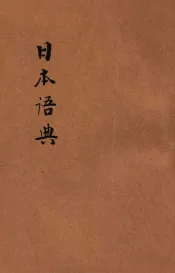 日本语典